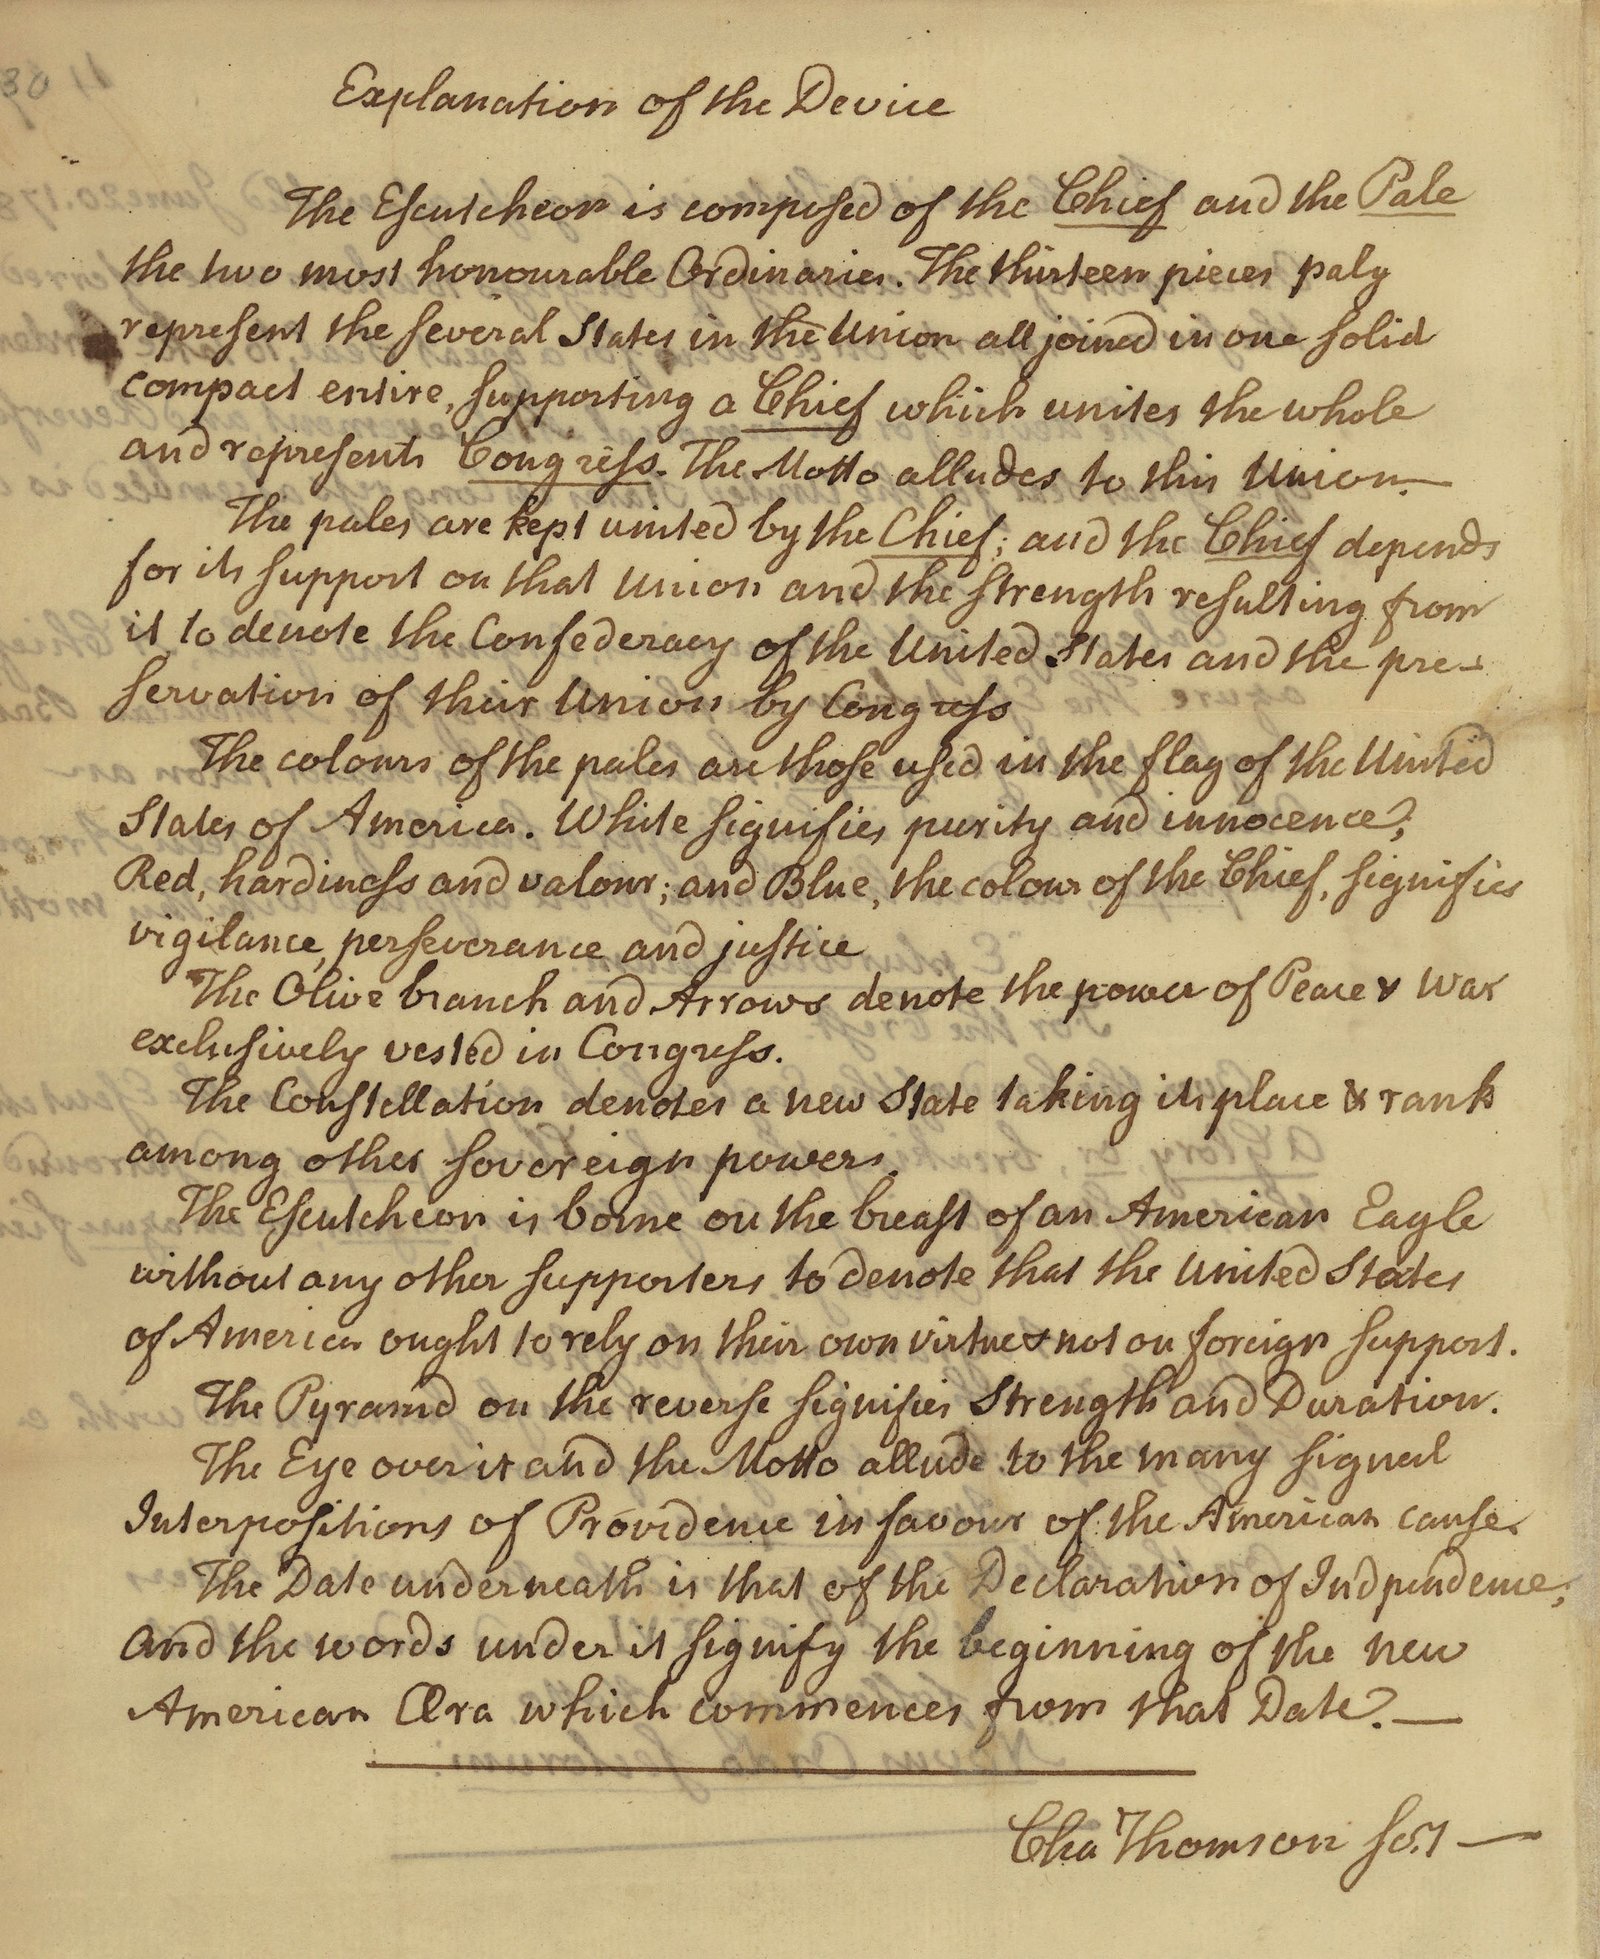 Explanation of the Device
The Escutcheon is composed of the Chief and the Pale
the two most honourable Ordinaries. The thirteen pieces paly
represent the several States in the Union all joined in one solid
compact entire, supporting a Chief which unites the whole
and represents Congress. The Motto alludes to this Union.—
The pales are kept united by the Chief; and the Chief depends
for its support on that Union and the strength resulting from
it to denote the Confederacy of the United States and the pre-
servation of their Union by Congress
The colours of the pales are those used in the flag of the United
States of America. White signifies purity and innocence;
Red, hardiness and valour; and Blue, the colour of the Chief, signifies
vigilance, perseverance and justice
The Olive branch and Arrows denote the power of Peace & War
exclusively vested in Congress.
The Constellation denotes a new State taking its place & rank
among other sovereign powers.
The Escutcheon is borne on the breast of an American Eagle
without any other supporters to denote that the United States
of America ought to rely on their own virtue & not on foreign support.
The Pyramid on the reverse signifies Strength and Duration.
The Eye over it and the Motto allude to the many signal
Interpositions of Providence in favour of the American cause.
The Date underneath is that of the Declaration of Indpendence;
and the words under it signify the beginning of the new
American Æra which commences from that Date.—
Cha Thomson secy —